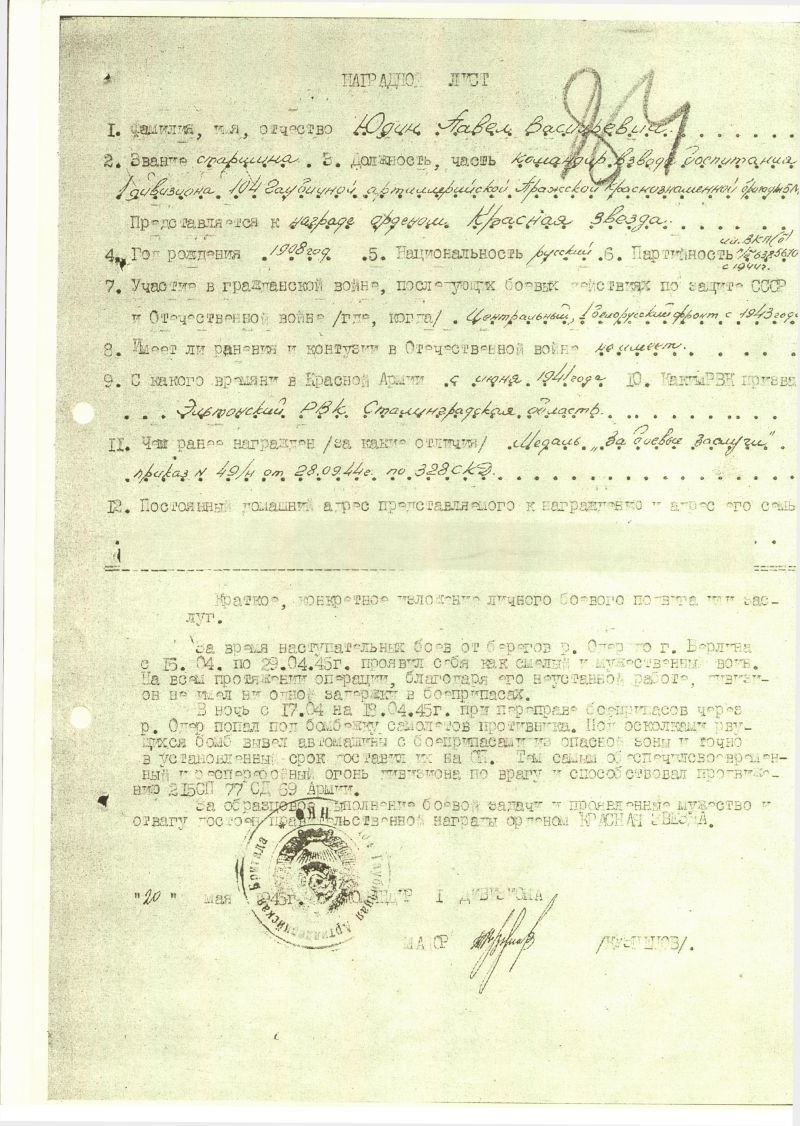 НАГРАДНОЙ ЛИСТ
1. Фамилия, имя, отчество Юдин Павел Васильевич
2. Звание старшина. 3. Должность, часть командир взвода боепитания
1 дивизиона 104 Гаубичной артиллерийской Пражской Краснознаменной бригады
Представляется к награде орденом Красная звезда.
чл. ВКП(б)
4. Год рождения 1908 год .5. Национальность русский .6. Партийность
с 1944г.
7. Участие в гражданской войне, последующих боевых действиях по защите СССР
и Отечественной войне /где, когда/ . Центральный, 1 Белорусский фронт с 1943 года
8. Имеет ли ранения и контузии в Отечественной войне не имеет.
9. С какого времяни в Красной Армии с июня 1941 года 10. Каким РВК призва
Эльтонский РВК Сталинградская область
11. Чем ранее награжден /за какие отличия/ Медаль „За боевые заслуги"
приказ N 49/н от 28.09.44г. по 328 СКД.
12. Постоянный домашний адрес представляемого к награждению и адрес его семь
Краткое, конкретное изложение личного боевого подвига или зас-
луг.
За время наступательных боев от берегов р. Одер до г. Берлина
с 15.04. по 29.04.45г. проявил себя как смелый и мужественный воин.
На всем протяжении операции, благодаря его неустанной работе, дивизи-
он не имел ни одной задержки в боеприпасах.
В ночь с 17.04 на 18.04.45г. при переправе боеприпасов через
р. Одер попал под бомбежку самолетов противника. Под осколками рву-
щихся бомб вывел автомашины с боеприпасами из опасной зоны и точно
в установленный срок доставил их на ОП. Тем самым обеспечил своевремен-
ный и бесперебойный огонь дивизиона по врагу и способствовал продвиже-
нию 215СП 77 СД 69 Армии.
За образцовое выполнение боевой задачи и проявленные мужество и
отвагу достоен правительственной награды орденом КРАСНАЯ ЗВЕЗДА.
"20" мая 1945г. КОМАНДИР I ДИВИЗИОНА
МАЙОР /КУЗНЕЦОВ/.
НКО 104 Гаубичная Артиллерийская Бригада